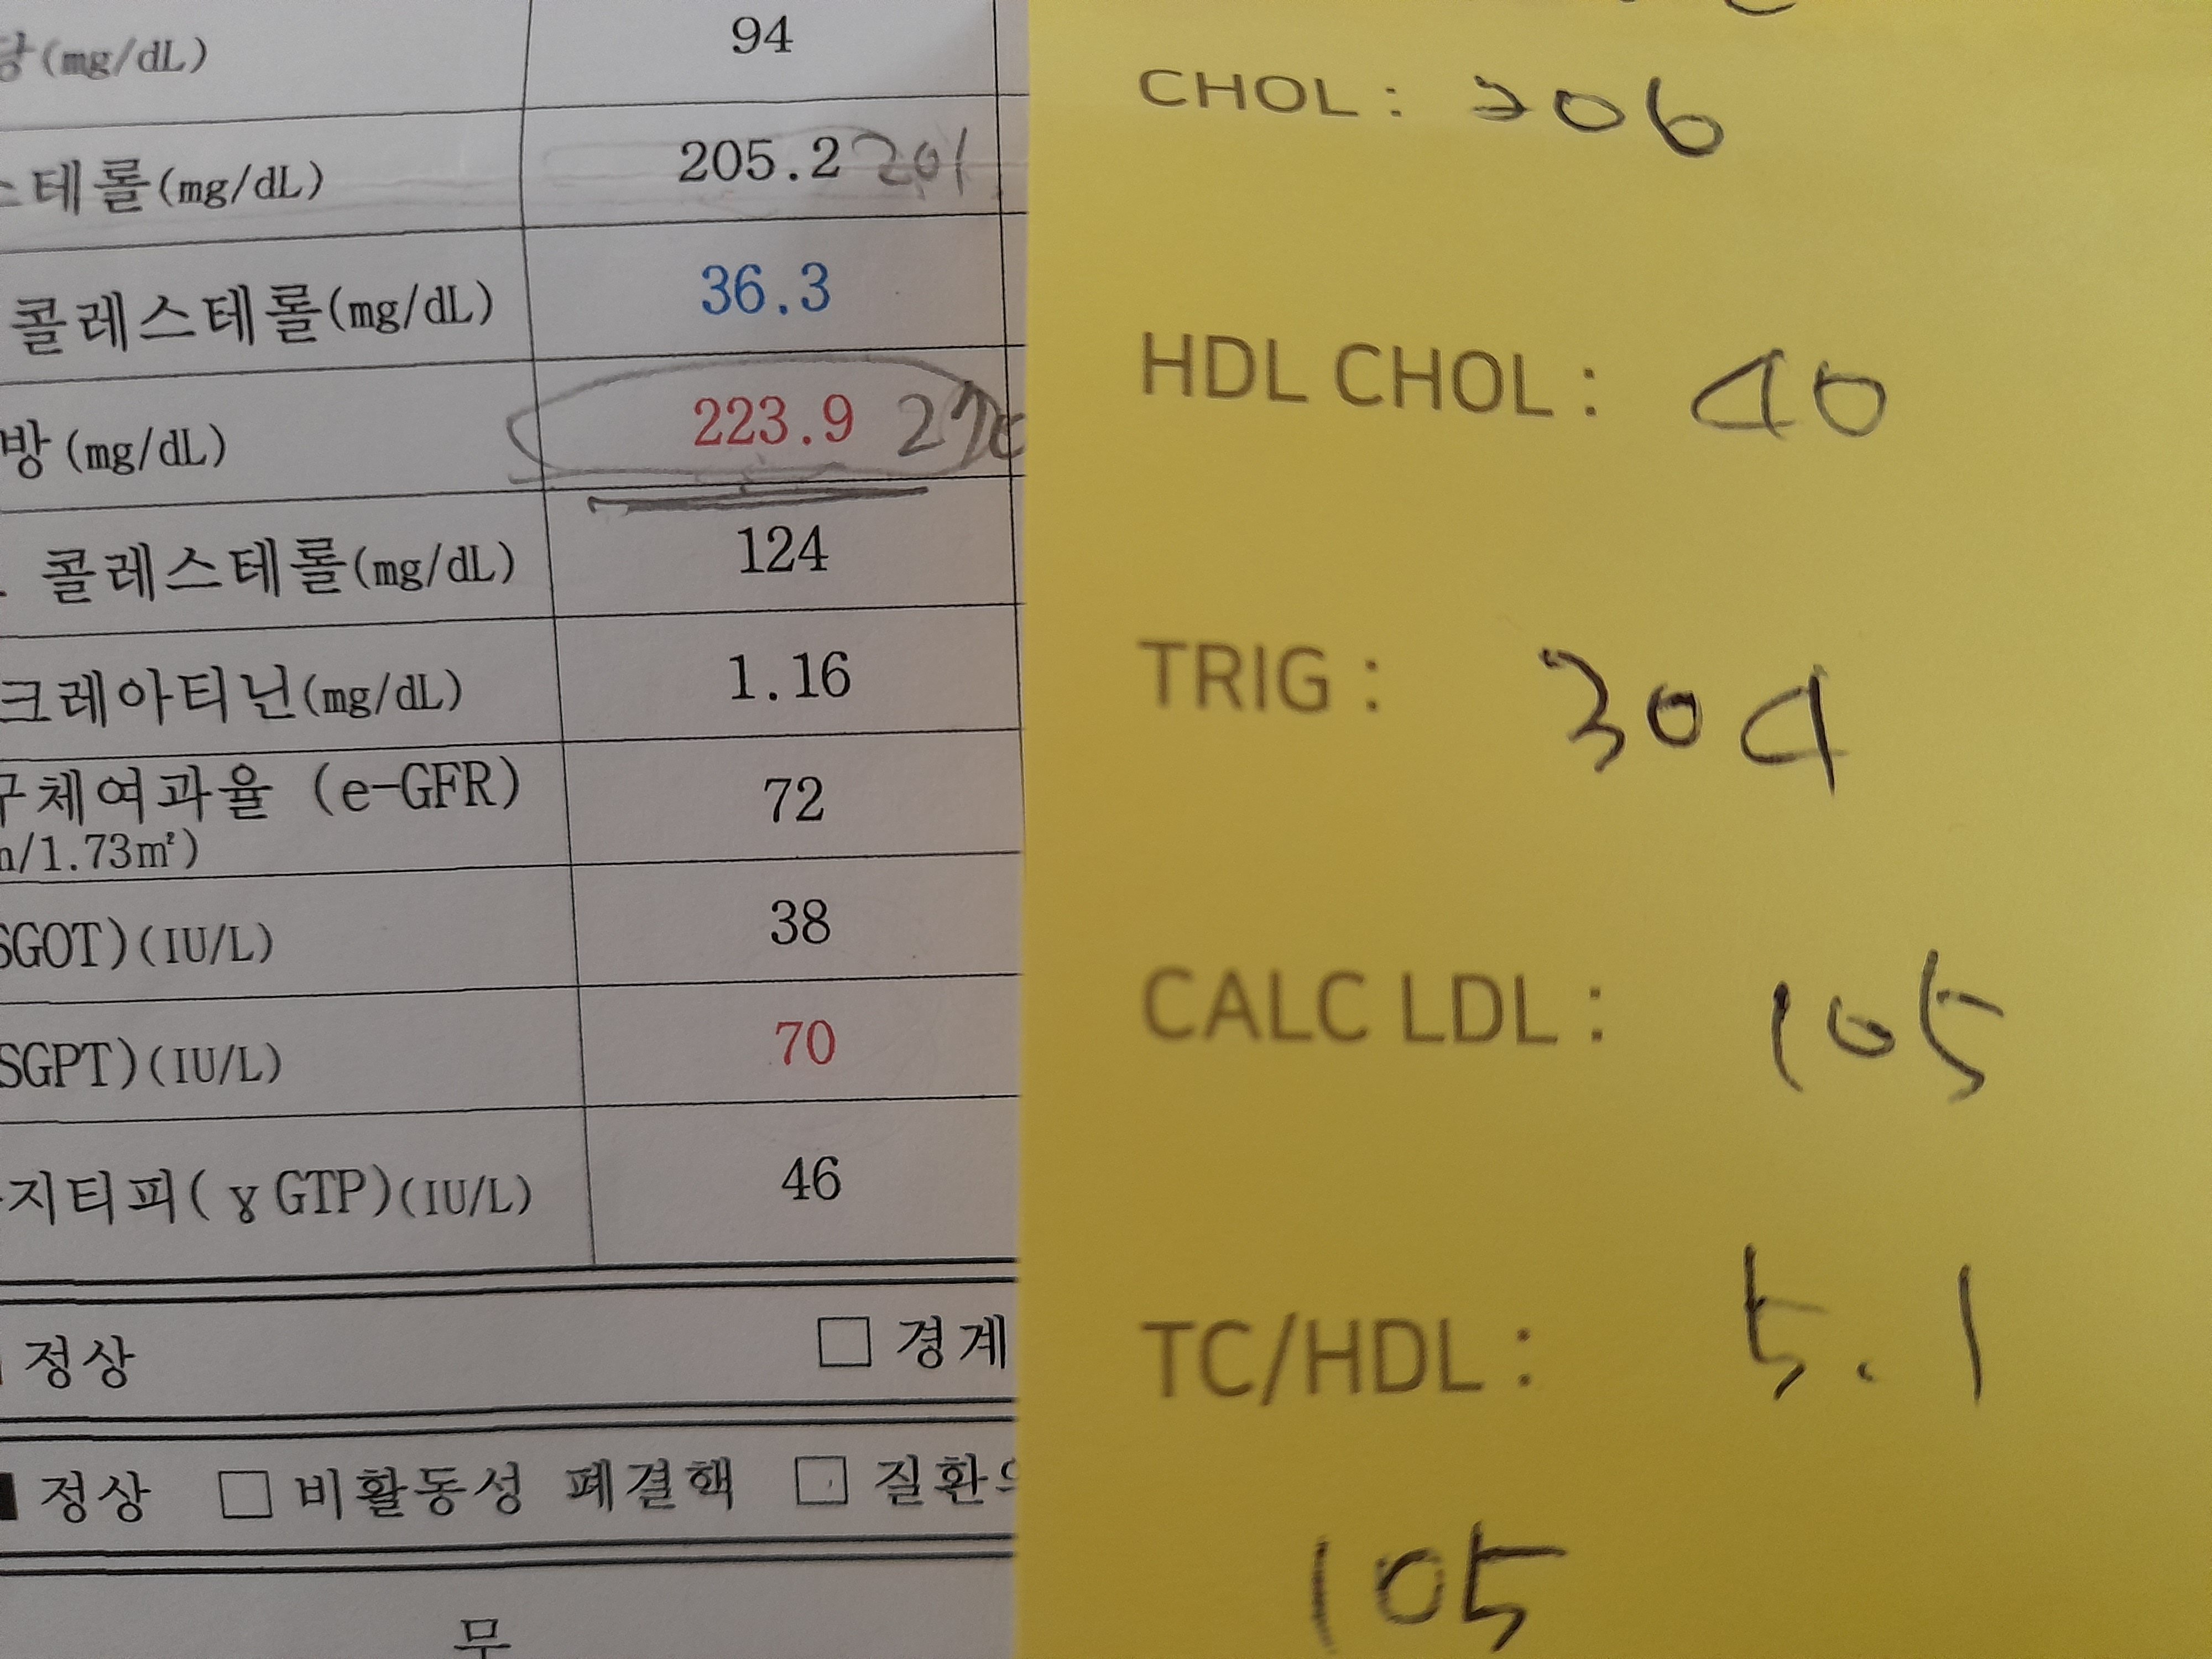 당(mg/dL) 94
스테롤(mg/dL) 205.2 201
콜레스테롤(mg/dL) 36.3
방(mg/dL) 223.9
콜레스테롤(mg/dL) 124
크레아티닌(mg/dL) 1.16
구체여과율 (e-GFR) 72
n/1.73㎡)
SGOT)(IU/L) 38
SGPT)(IU/L) 70
지티피(γGTP)(IU/L) 46
정상 □ 경계
■ 정상 □ 비활동성 폐결핵 □ 질환의
무
CHOL : 206
HDL CHOL : 40
TRIG : 304
CALC LDL : 105
TC/HDL : 5.1
105